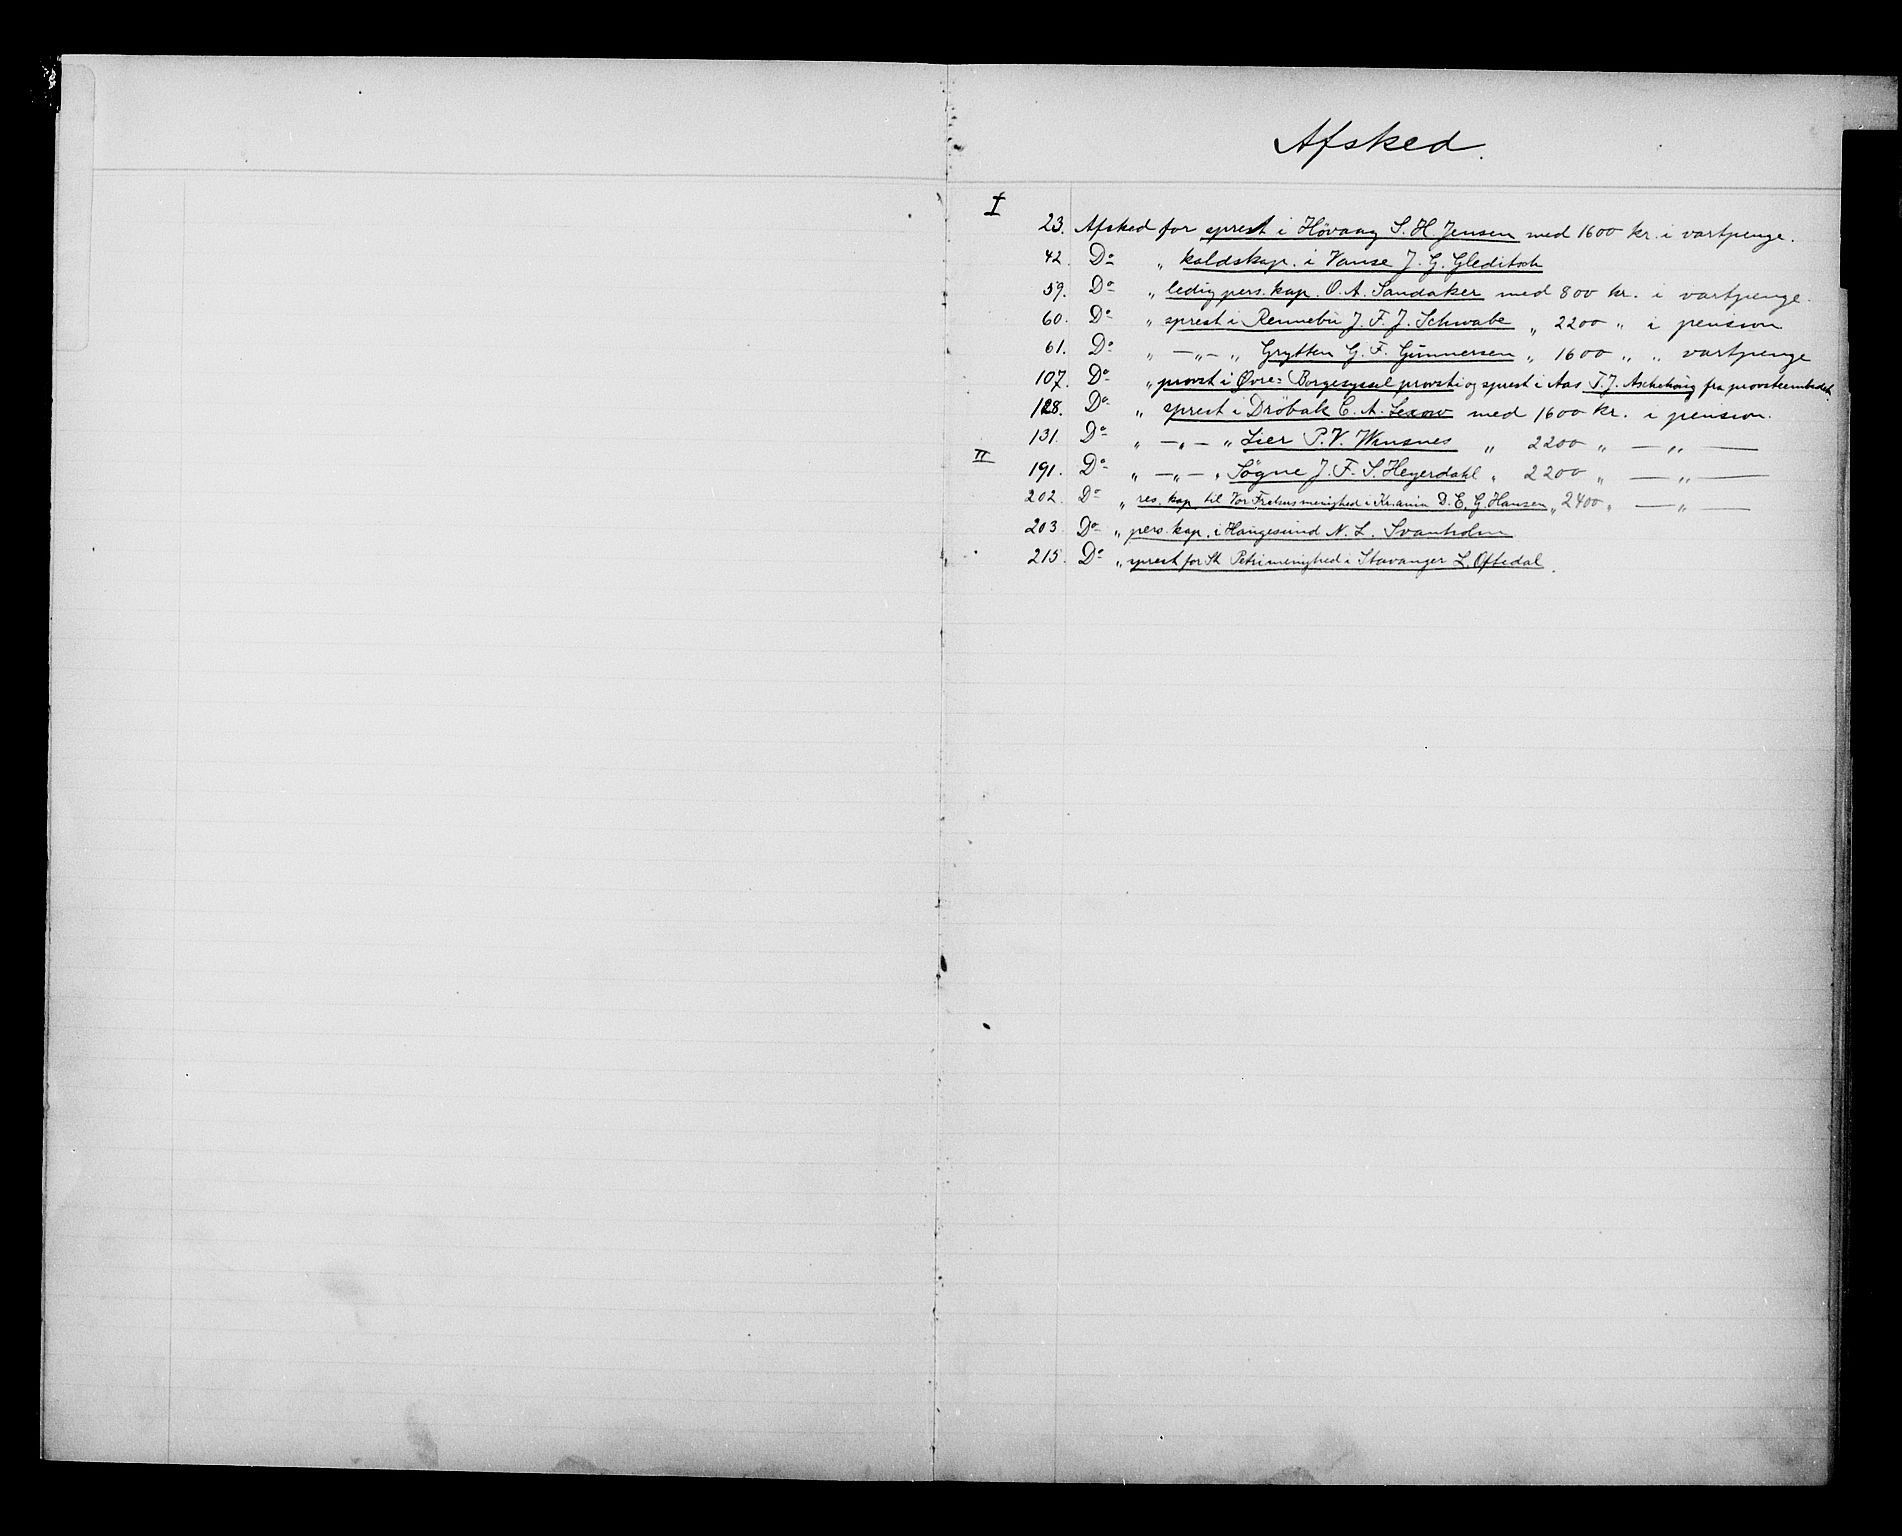 Afsked.
I
23. Afsked for sprest i Høvaag S. H. Jensen med 1600 kr. i vartpenge.
42. Do „ kaldskap. i Vanse J. G. Gleditsch
59. Do „ ledig pers. kap. O. A. Sandaker med 800 kr. i vartpenge.
60. Do „ sprest i Rennebu J. F. J. Schwabe „ 2200 „ i pension
61. Do „ —„— „ Grytten G. F. Gunnersen „ 1600 „ „ vartpenge
107. Do „ provst i Øvre-Borgesyssel provsti og sprest i Aas T. J. Aschehoug fra provsteembedet.
128. Do „ sprest i Drøbak C. A. Lexow med 1600 kr. i pension.
131. Do „ —„— „ Lier P. V. Winsnes „ 2200 „ —„—
II
191. Do „ —„— „ Søgne J. F. S. Heyerdahl „ 2200 „ —„—
202. Do „ res. kap. til Vor Frelsers menighed i Kr.ania D. E. G. Hansen „ 2400 „ —„—
203. Do „ pers. kap. i Haugesund N. L. Svanholm
215. Do „ sprest for St. Petri menighed i Stavanger L. Oftedal.